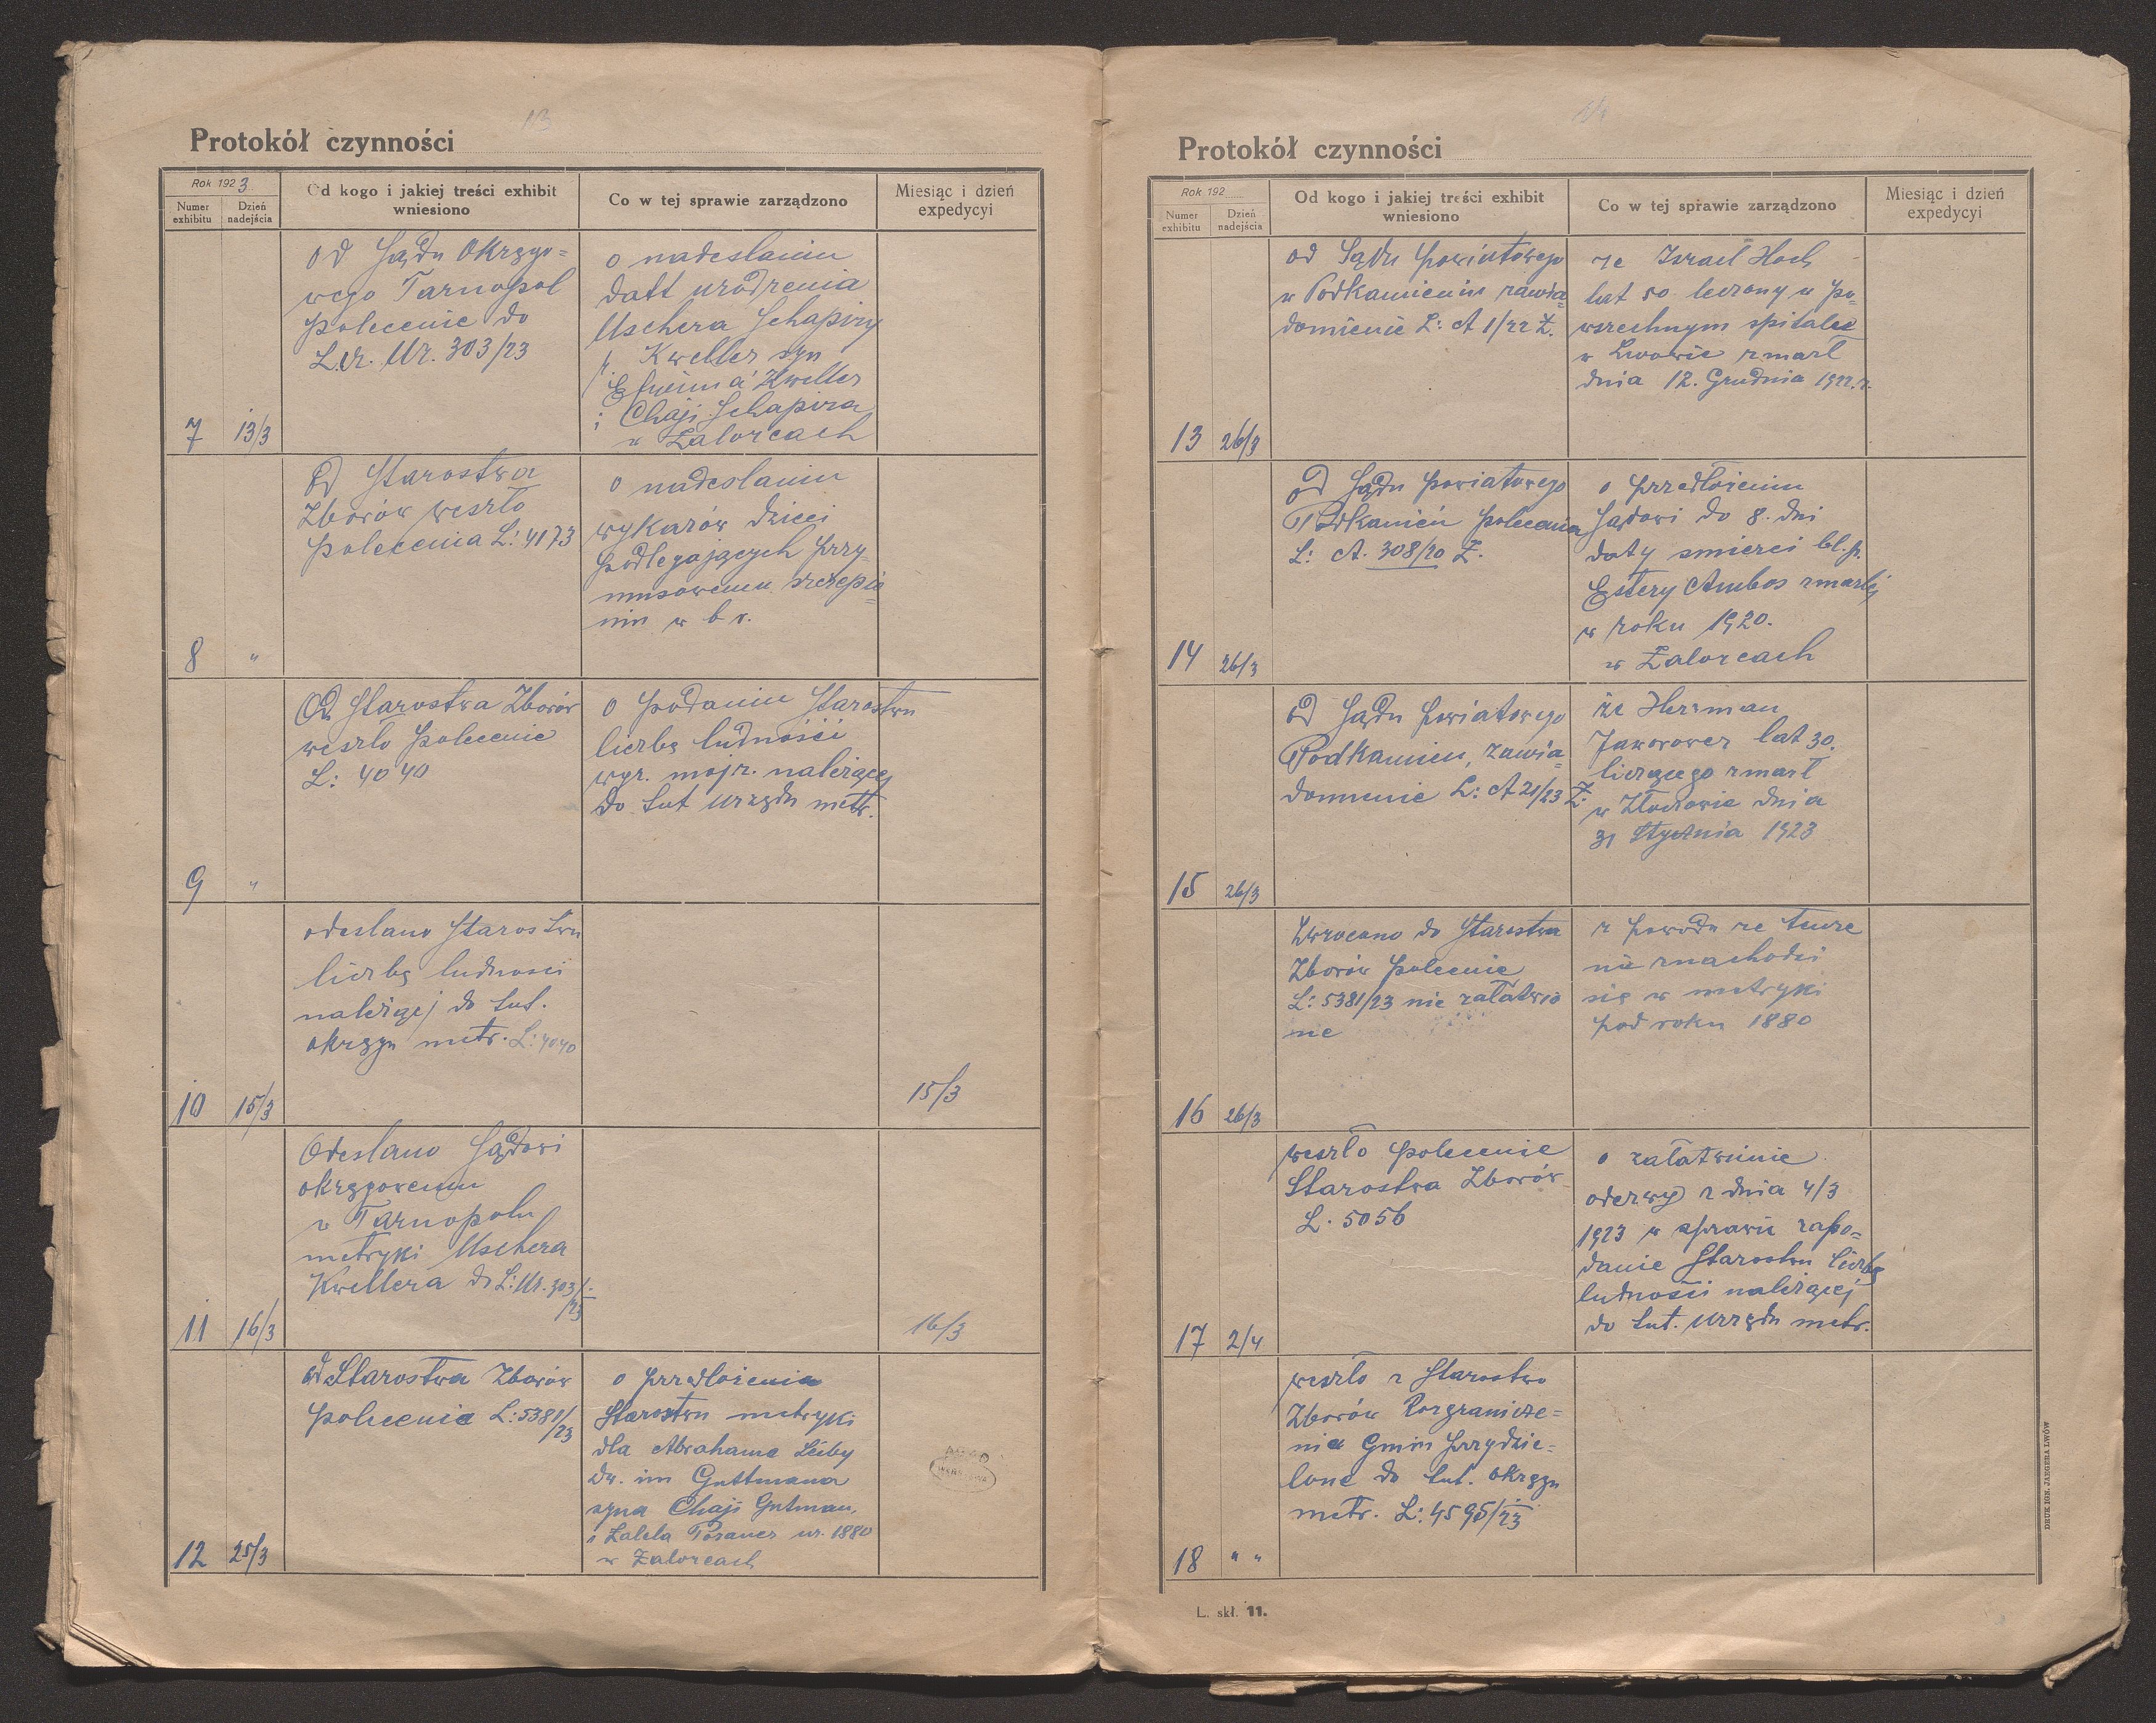 13
Protokół czynności
Rok 1923
Numer exhibitu
Dzień nadejścia
Od kogo i jakiej treści exhibit wniesiono
Co w tej sprawie zarządzono
Miesiąc i dzień expedycyi
7
13/3
od Sądu Okręgo=
wego Tarnopol
polecenie do
L.cz. Ur. 303/23
o nadeslaniu
datt urodzenia
Uschera Schapiry
Kweller syn
Kweller
i Chaji Schapira
w Załozcach
8
"
Od Starostwa
Zborów weszło
polecenia L: 4173
o nadeslaniu
wykazów dzieci
podlegających przy
musowemu szczepie=
niu w b r.
9
"
Od Starostwa Zborów
weszlo polecenie
L: 4040
o podaniu Starostwu
liczbę ludności
wyz. mojż. należącej
do tut urzędu metr.
10
15/3
odeslano Starostwu
liczbę ludnosci
należącej do tut.
okręgu metr. L: 4040
15/3
11
16/3
Odeslano Sądowi
okręgowemu
w Tarnopolu
metryki Uschera
Kwellera do L: Ur. 303/
/23
16/3
12
25/3
od Starostwa Zborów
polecenie L: 5381/
/23
o przedłożenia
Starostwu metryki
dla Abrahama Leiby
dw. im Guttmana
syna Chaji Gutman
i Zalela Posaner ur. 1880
w Zalozcach
WARSZAWA
Protokół czynności
Rok 192
Numer exhibitu
Dzień nadejścia
Od kogo i jakiej treści exhibit wniesiono
Co w tej sprawie zarządzono
Miesiąc i dzień expedycyi
13
26/3
od Sądu powiatowego
w Podkamieniu zawia=
domienie L: A 1/22 Z.
że Israel Hoch
lat 50 leczony w po=
wszechnym spitalu
w Lwowie zmarł
dnia 12. Grudnia 1922. r.
14
26/3
od Sądu powiatowego
Podkamień polecenia
L: A. 308/20 Z.
o przedłożeniu
Sądowi do 8. dni
daty smierci bl.p.
Estery Ambos zmarłej
w roku 1920.
w Załozcach
15
26/3
od Sądu powiatowego
Podkamien, zawia=
domienie L: A 21/23 Z:
że Herman
Jaworower lat 30.
liczącego zmarł
w Złoczowie dnia
31 Stycznia 1923
16
26/3
Zwrocono do Starostwa
Zborów polecenie
L: 5381/23 nie załatwio
ne
z powodu ze tenze
nie znachodzi
się w metryki
pod roku 1880
17
2/4
weszło polecenie
Starostwa Zborów
L. 5056
o załatwienie
odezwy z dnia 4/3
1923 w sprawie zapo=
danie Starostwu liczbę
ludności należącej
do tut. urzędu metr.
18
" "
weszło z Starostwo
Zborów Rozgranicze=
nia Gmin przydzie=
lone do tut. okręgu
metr. L: 4595/23
L. skł. 11.
DRUK IGN. JAEGERA LWÓW